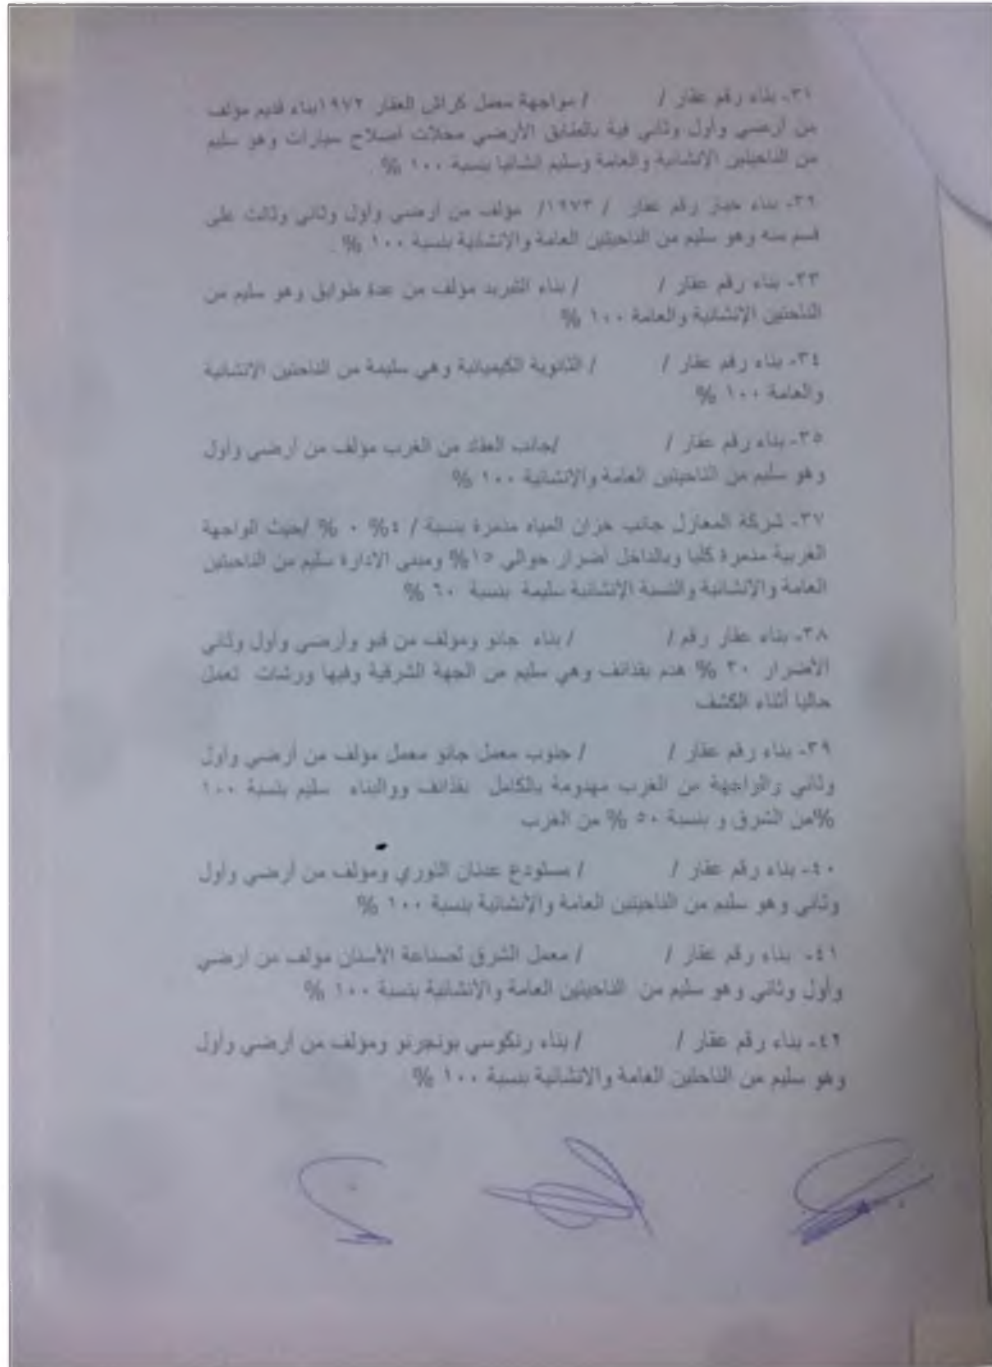 ٣١- بناء رقم عقار / / مواجهة معمل كراش العقار ١٩٧٢بناء قديم مؤلف
من أرضي وأول وثاني فية بالطابق الأرضي محلات اصلاح سيارات وهو سليم
من الناحيتين الإنشائية والعامة وسليم انشائيا بنسبة ١٠٠ % .
٣٢- بناء خباز رقم عقار / ١٩٧٣/ مؤلف من أرضي وأول وثاني وثالث على
قسم منه وهو سليم من الناحيتين العامة والانشائية بنسبة ١٠٠ % .
٣٣- بناء رقم عقار / / بناء التبريد مؤلف من عدة طوابق وهو سليم من
الناحتين الإنشائية والعامة ١٠٠ %
٣٤- بناء رقم عقار / / الثانوية الكيميائية وهي سليمة من الناحتين الانشائية
والعامة ١٠٠ %
٣٥- بناء رقم عقار / /جانب العقاد من الغرب مؤلف من أرضي وأول
وهو سليم من الناحيتين العامة والإنشائية ١٠٠ %
٣٧- شركة المغازل جانب خزان المياه مدمرة بنسبة / ٤% ٠ % /حيث الواجهة
الغربية مدمرة كليا وبالداخل أضرار حوالي ١٥% ومبنى الادارة سليم من الناحيتين
العامة والانشائية والنسبة الإنشائية سليمة بنسبة ٦٠ %
٣٨- بناء عقار رقم / / بناء جانو ومؤلف من قبو وأرضي وأول وثاني
الأضرار ٣٠ % هدم بقذائف وهي سليم من الجهة الشرقية وفيها ورشات تعمل
حاليا أثناء الكشف
٣٩- بناء رقم عقار / / جنوب معمل جانو معمل مؤلف من أرضي وأول
وثاني والواجهة من الغرب مهدومة بالكامل بقذائف ووالبناء سليم بنسبة ١٠٠
%من الشرق و بنسبة ٥٠ % من الغرب
٤٠- بناء رقم عقار / / مستودع عدنان النوري ومؤلف من أرضي وأول
وثاني وهو سليم من الناحيتين العامة والإنشائية بنسبة ١٠٠ %
٤١- بناء رقم عقار / / معمل الشرق لصناعة الأسنان مؤلف من أرضي
وأول وثاني وهو سليم من الناحيتين العامة والإنشائية بنسبة ١٠٠ %
٤٢- بناء رقم عقار / / بناء رنكوسي بونجرنو ومؤلف من أرضي وأول
وهو سليم من الناحتين العامة والانشائية بنسبة ١٠٠ %